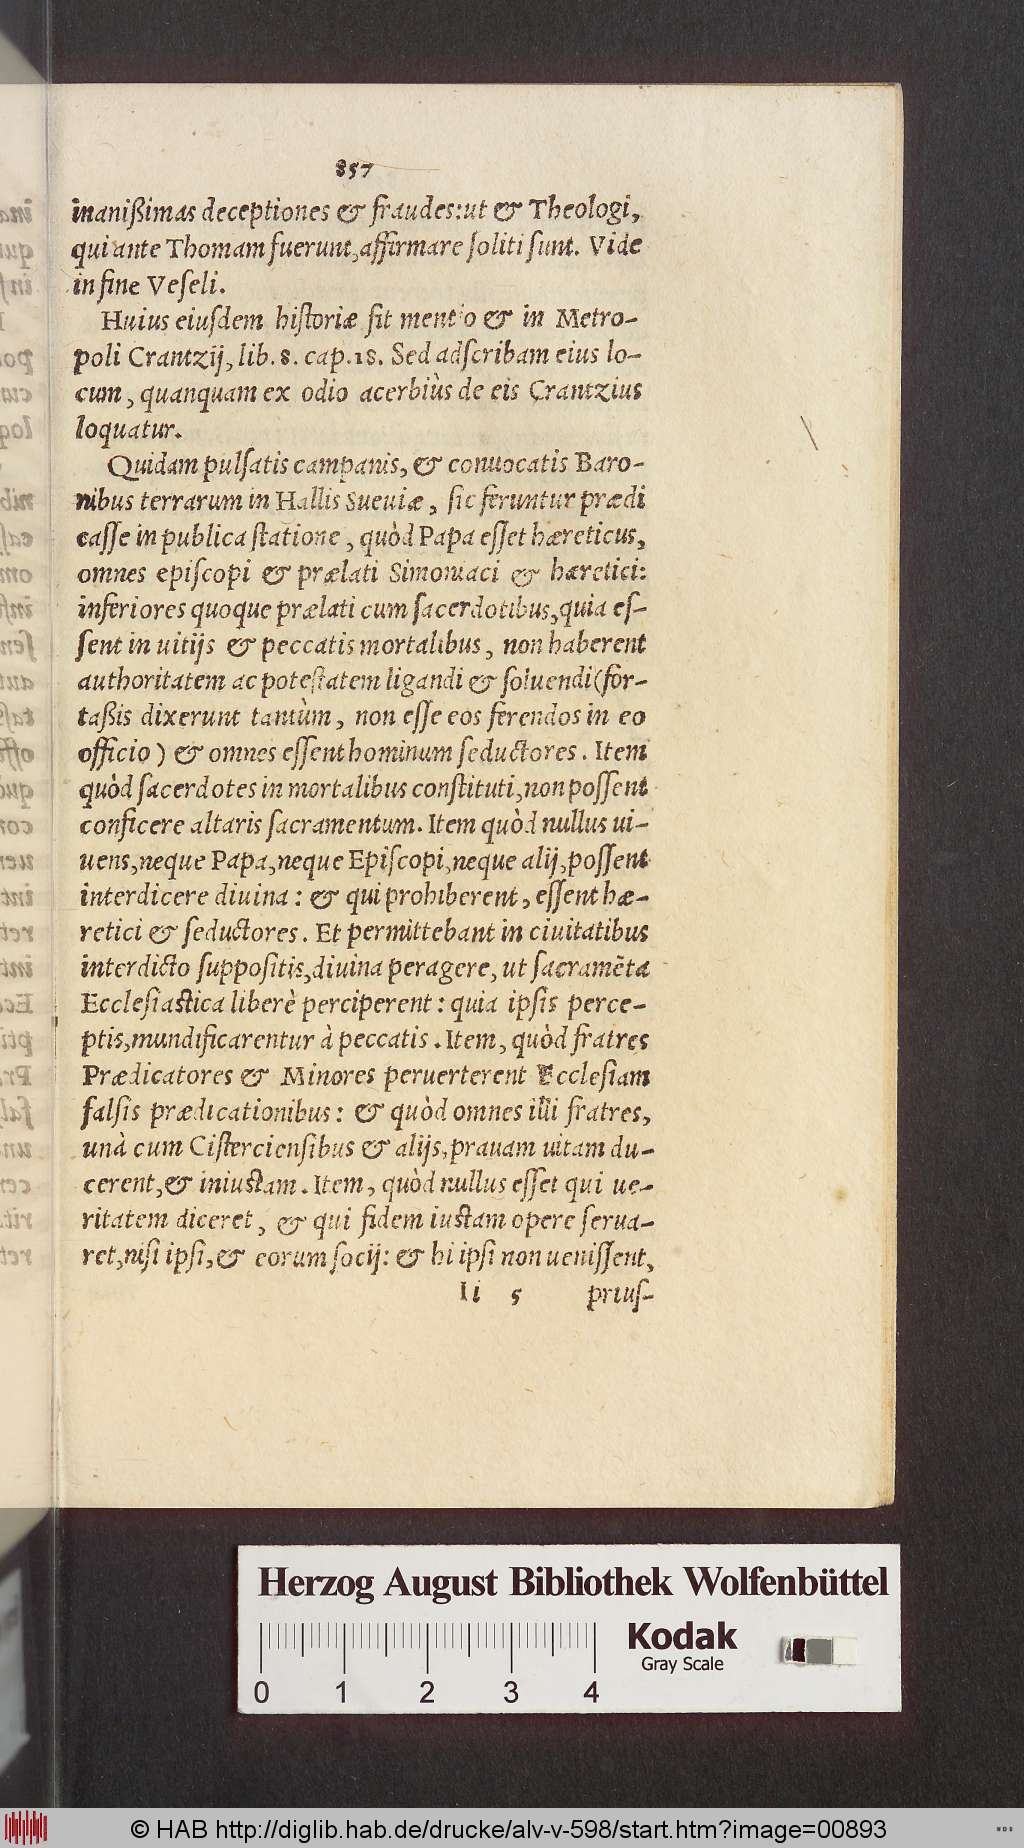 857
inanißimas deceptiones & fraudes: ut & Theologi,
qui ante Thomam fuerunt, affirmare ſoliti ſunt. Vide
in fine Veſeli.
Huius eiuſdem hiſtoriæ fit mentio & in Metro-
poli Crantzij, lib. 8. cap. 18. Sed adſcribam eius lo-
cum, quanquam ex odio acerbiùs de eis Crantzius
loquatur.
Quidam pulſatis campanis, & conuocatis Baro-
nibus terrarum in Hallis Sueuiæ, ſic feruntur prædi
caſſe in publica ſtatione, quòd Papa eſſet hæreticus,
omnes epiſcopi & prælati Simoniaci & hæretici:
inferiores quoque prælati cum ſacerdotibus, quia eſ-
ſent in uitijs & peccatis mortalibus, non haberent
authoritatem ac poteſtatem ligandi & ſoluendi (for-
taßis dixerunt tantùm, non eſſe eos ferendos in eo
officio) & omnes eſſent hominum ſeductores. Item
quòd ſacerdotes in mortalibus conſtituti, non poſſent
conficere altaris ſacramentum. Item quòd nullus ui-
uens, neque Papa, neque Epiſcopi, neque alij, poſſent
interdicere diuina: & qui prohiberent, eſſent hæ-
retici & ſeductores. Et permittebant in ciuitatibus
interdicto ſuppoſitis, diuina peragere, ut ſacramẽta
Eccleſiaſtica liberè perciperent: quia ipſis perce-
ptis, mundificarentur à peccatis. Item, quòd fratres
Prædicatores & Minores peruerterent Eccleſiam
falſis prædicationibus: & quòd omnes illi fratres,
unà cum Ciſtercienſibus & alijs, prauam uitam du-
cerent, & iniuſtam. Item, quòd nullus eſſet qui ue-
ritatem diceret, & qui fidem iuſtam opere ſerua-
ret, niſi ipſi, & eorum ſocij: & hi ipſi non ueniſſent,
Ii 5 priuſ-
Herzog August Bibliothek Wolfenbüttel
Kodak
Gray Scale
0 1 2 3 4
© HAB http://diglib.hab.de/drucke/alv-v-598/start.htm?image=00893